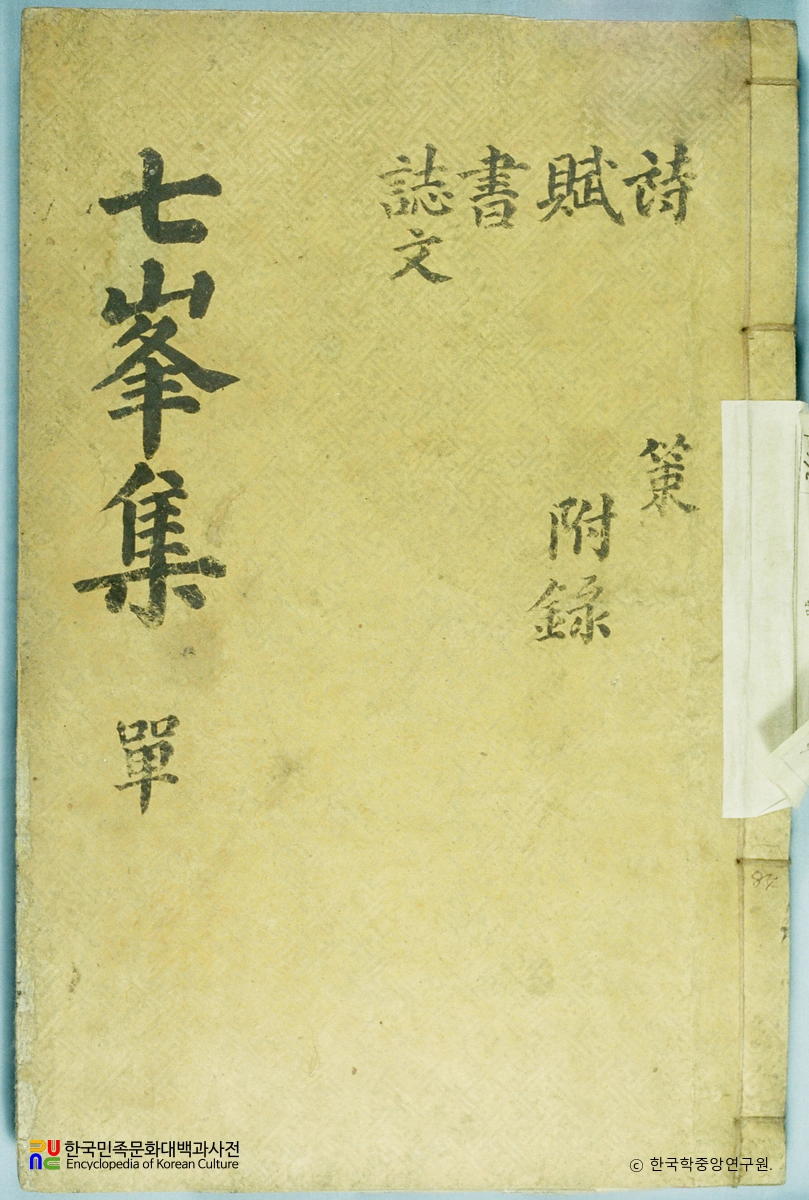 詩
賦
書
誌文
策
附錄
七峯集 單
한국민족문화대백과사전
Encyclopedia of Korean Culture
© 한국학중앙연구원.